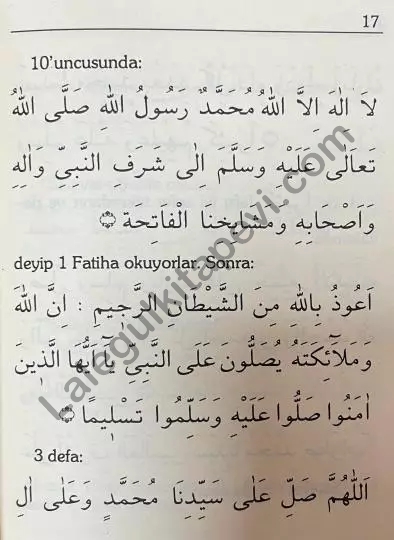 17
10'uncusunda:
لاَ اِلٰهَ اِلاَّ اللّٰهُ مُحَمَّدٌ رَسُولُ اللّٰهِ صَلَّى اللّٰهُ
تَعَالٰى عَلَيْهِ وَسَلَّمَ اِلٰى شَرَفِ النَّبِيِّ وَاٰلِهِ
وَاَصْحَابِهِ وَمَشَايِخِنَا الْفَاتِحَة
deyip 1 Fatiha okuyorlar. Sonra:
اَعُوذُ بِاللّٰهِ مِنَ الشَّيْطَانِ الرَّجِيمِ : اِنَّ اللّٰهَ
وَمَلاَۤئِكَتَهُ يُصَلُّونَ عَلَى النَّبِيِّ يَاۤ اَيُّهَا الَّذِينَ
اٰمَنُوا صَلُّوا عَلَيْهِ وَسَلِّمُوا تَسْلِيمًا
3 defa:
اَللّٰهُمَّ صَلِّ عَلٰى سَيِّدِنَا مُحَمَّدٍ وَعَلٰى اٰلِ
Lalegulkitapevi.com